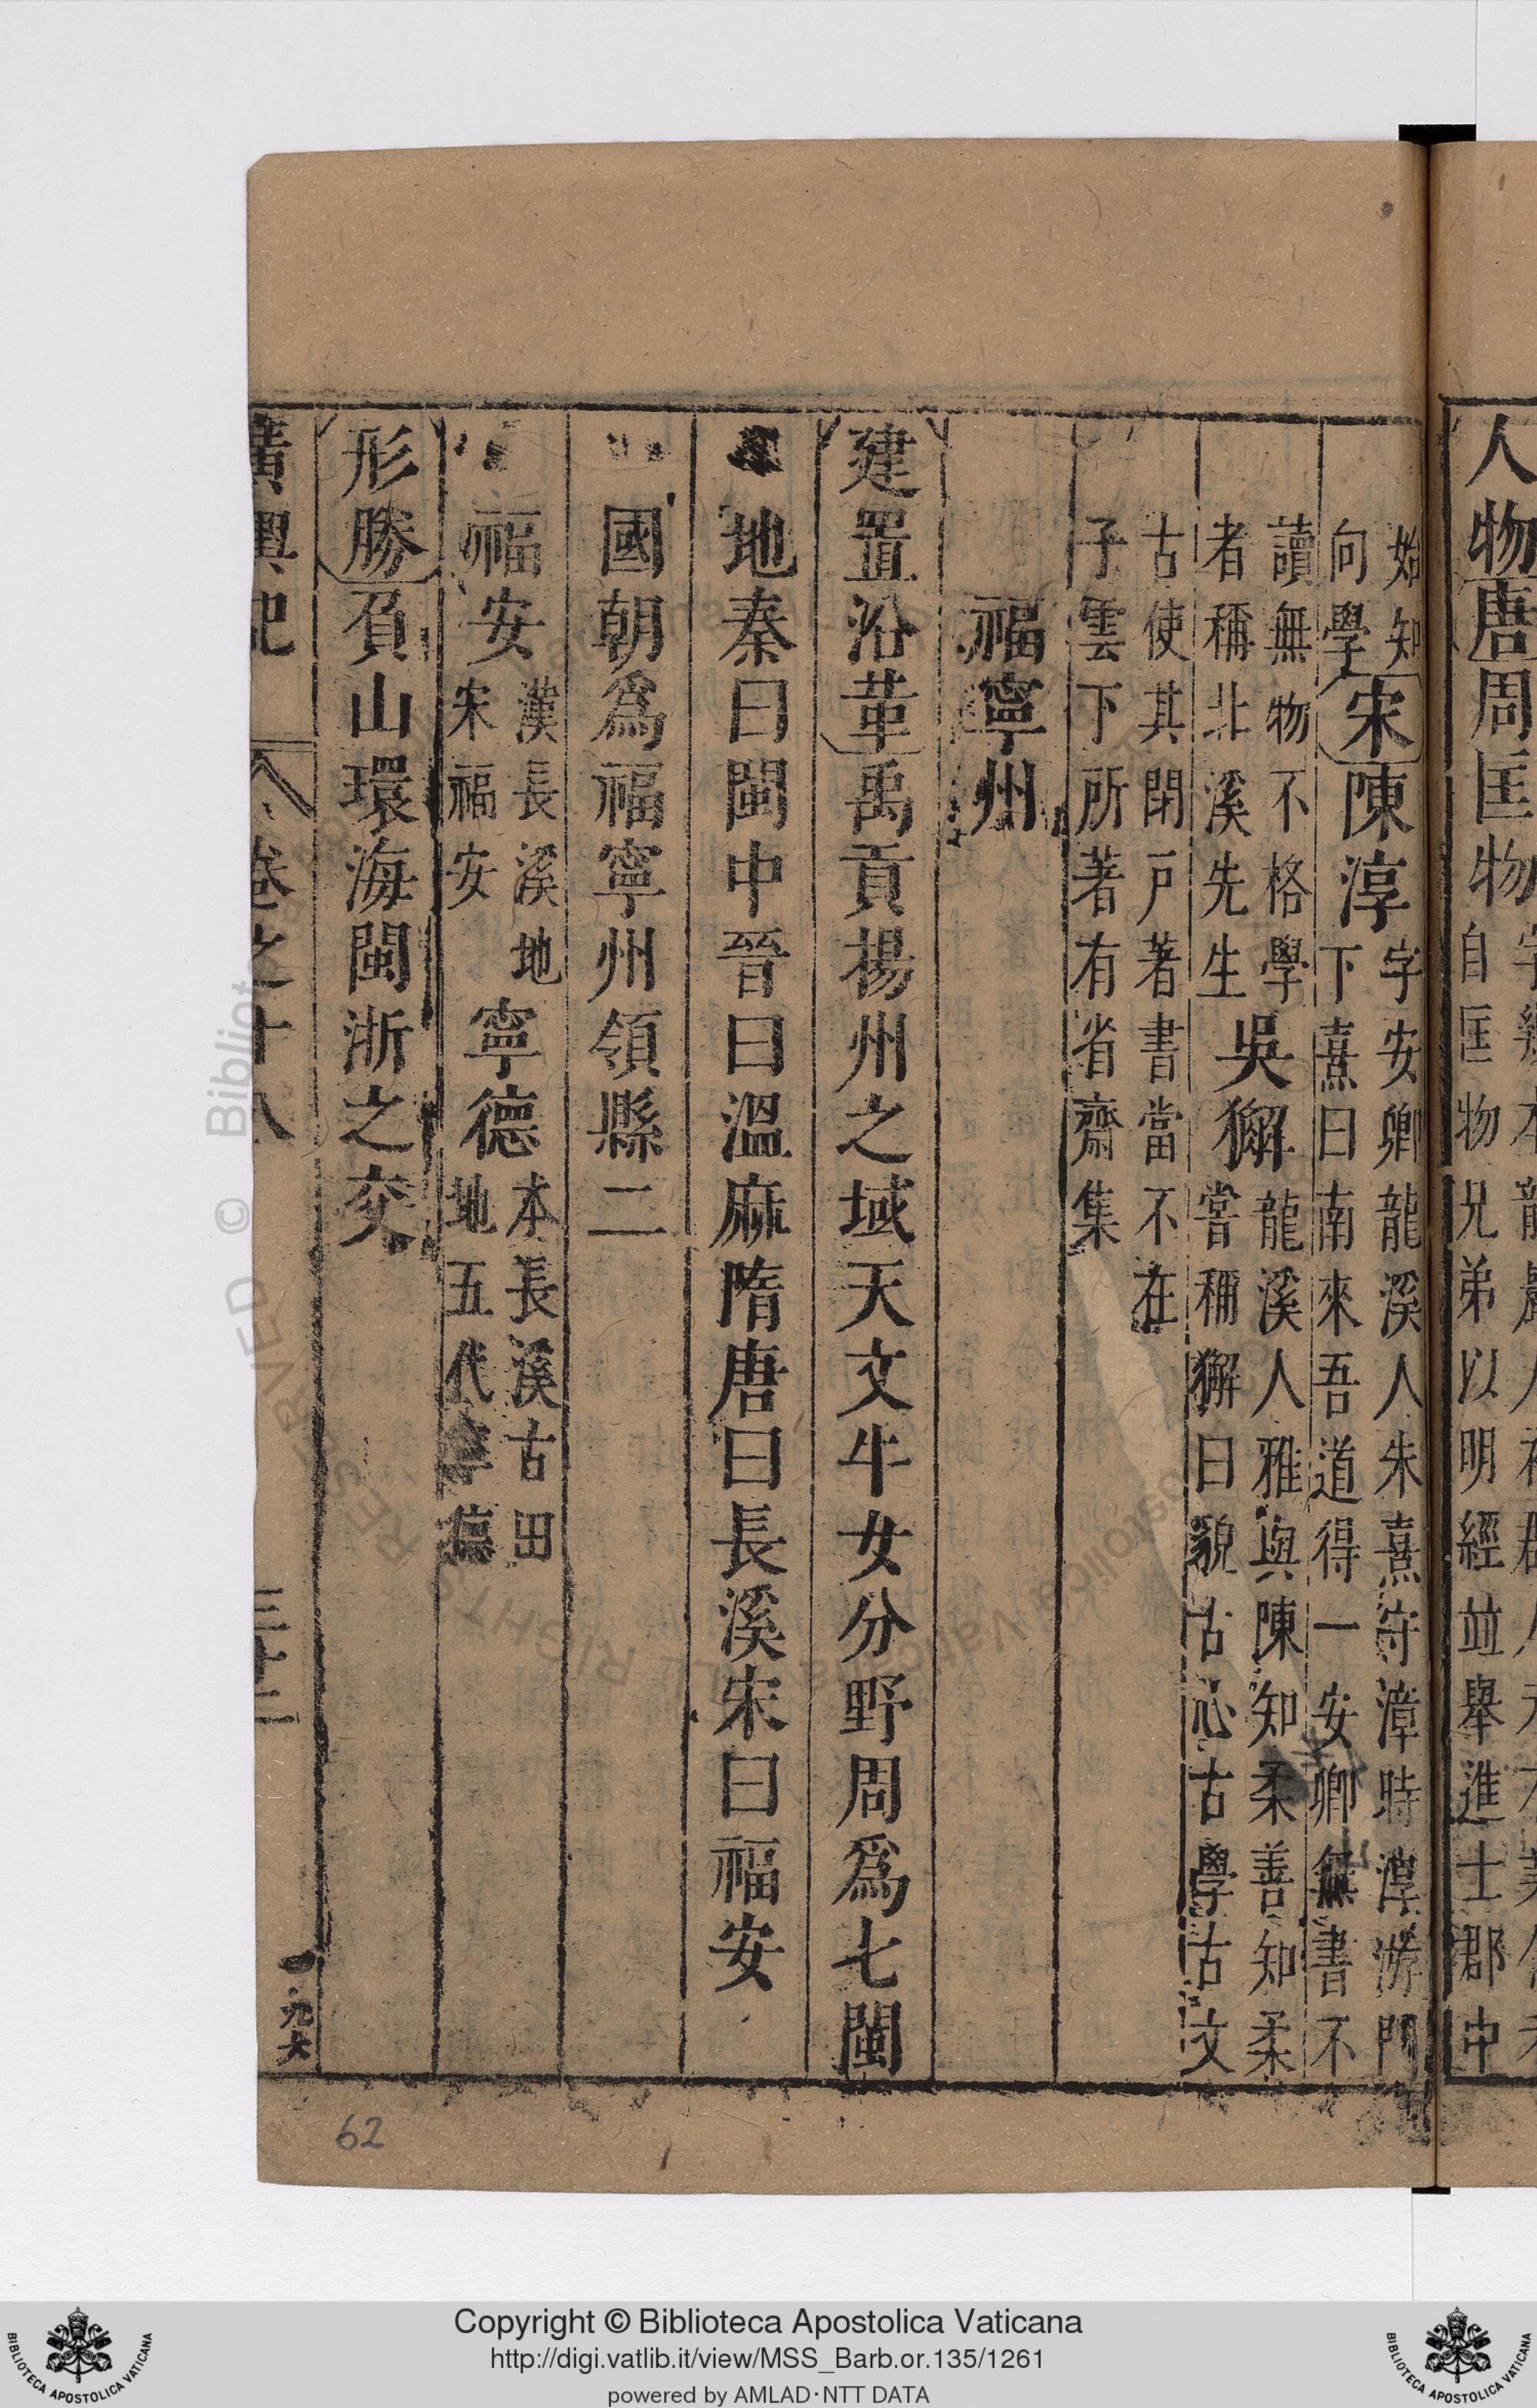 人物唐周匡物
自匡物兄弟以明經並舉進士郡中
始知
向學
宋陳淳
字安卿龍溪人朱熹守漳時淳游門
下熹曰南來吾道得一安卿無書不
讀無物不格學
者稱北溪先生
吳獬
龍溪人雅與陳知柔善知柔
嘗稱獬曰貌古心古學古文
古使其閉戶著書當不在
子雲下所著有省齋集
福寧州
建置沿革禹貢揚州之域天文牛女分野周爲七閩
地秦曰閩中晉曰溫麻隋唐曰長溪宋曰福安
國朝爲福寧州領縣二
福安
漢長溪地
宋福安
寧德
本長溪古田
地五代寧德
形勝負山環海閩浙之交
廣輿記
卷之十八
三十二
一九六
62
Copyright © Biblioteca Apostolica Vaticana
http://digi.vatlib.it/view/MSS_Barb.or.135/1261
powered by AMLAD·NTT DATA
BIBLIOTECA APOSTOLICA VATICANA
BIBLIOTECA APOSTOLICA VATICANA